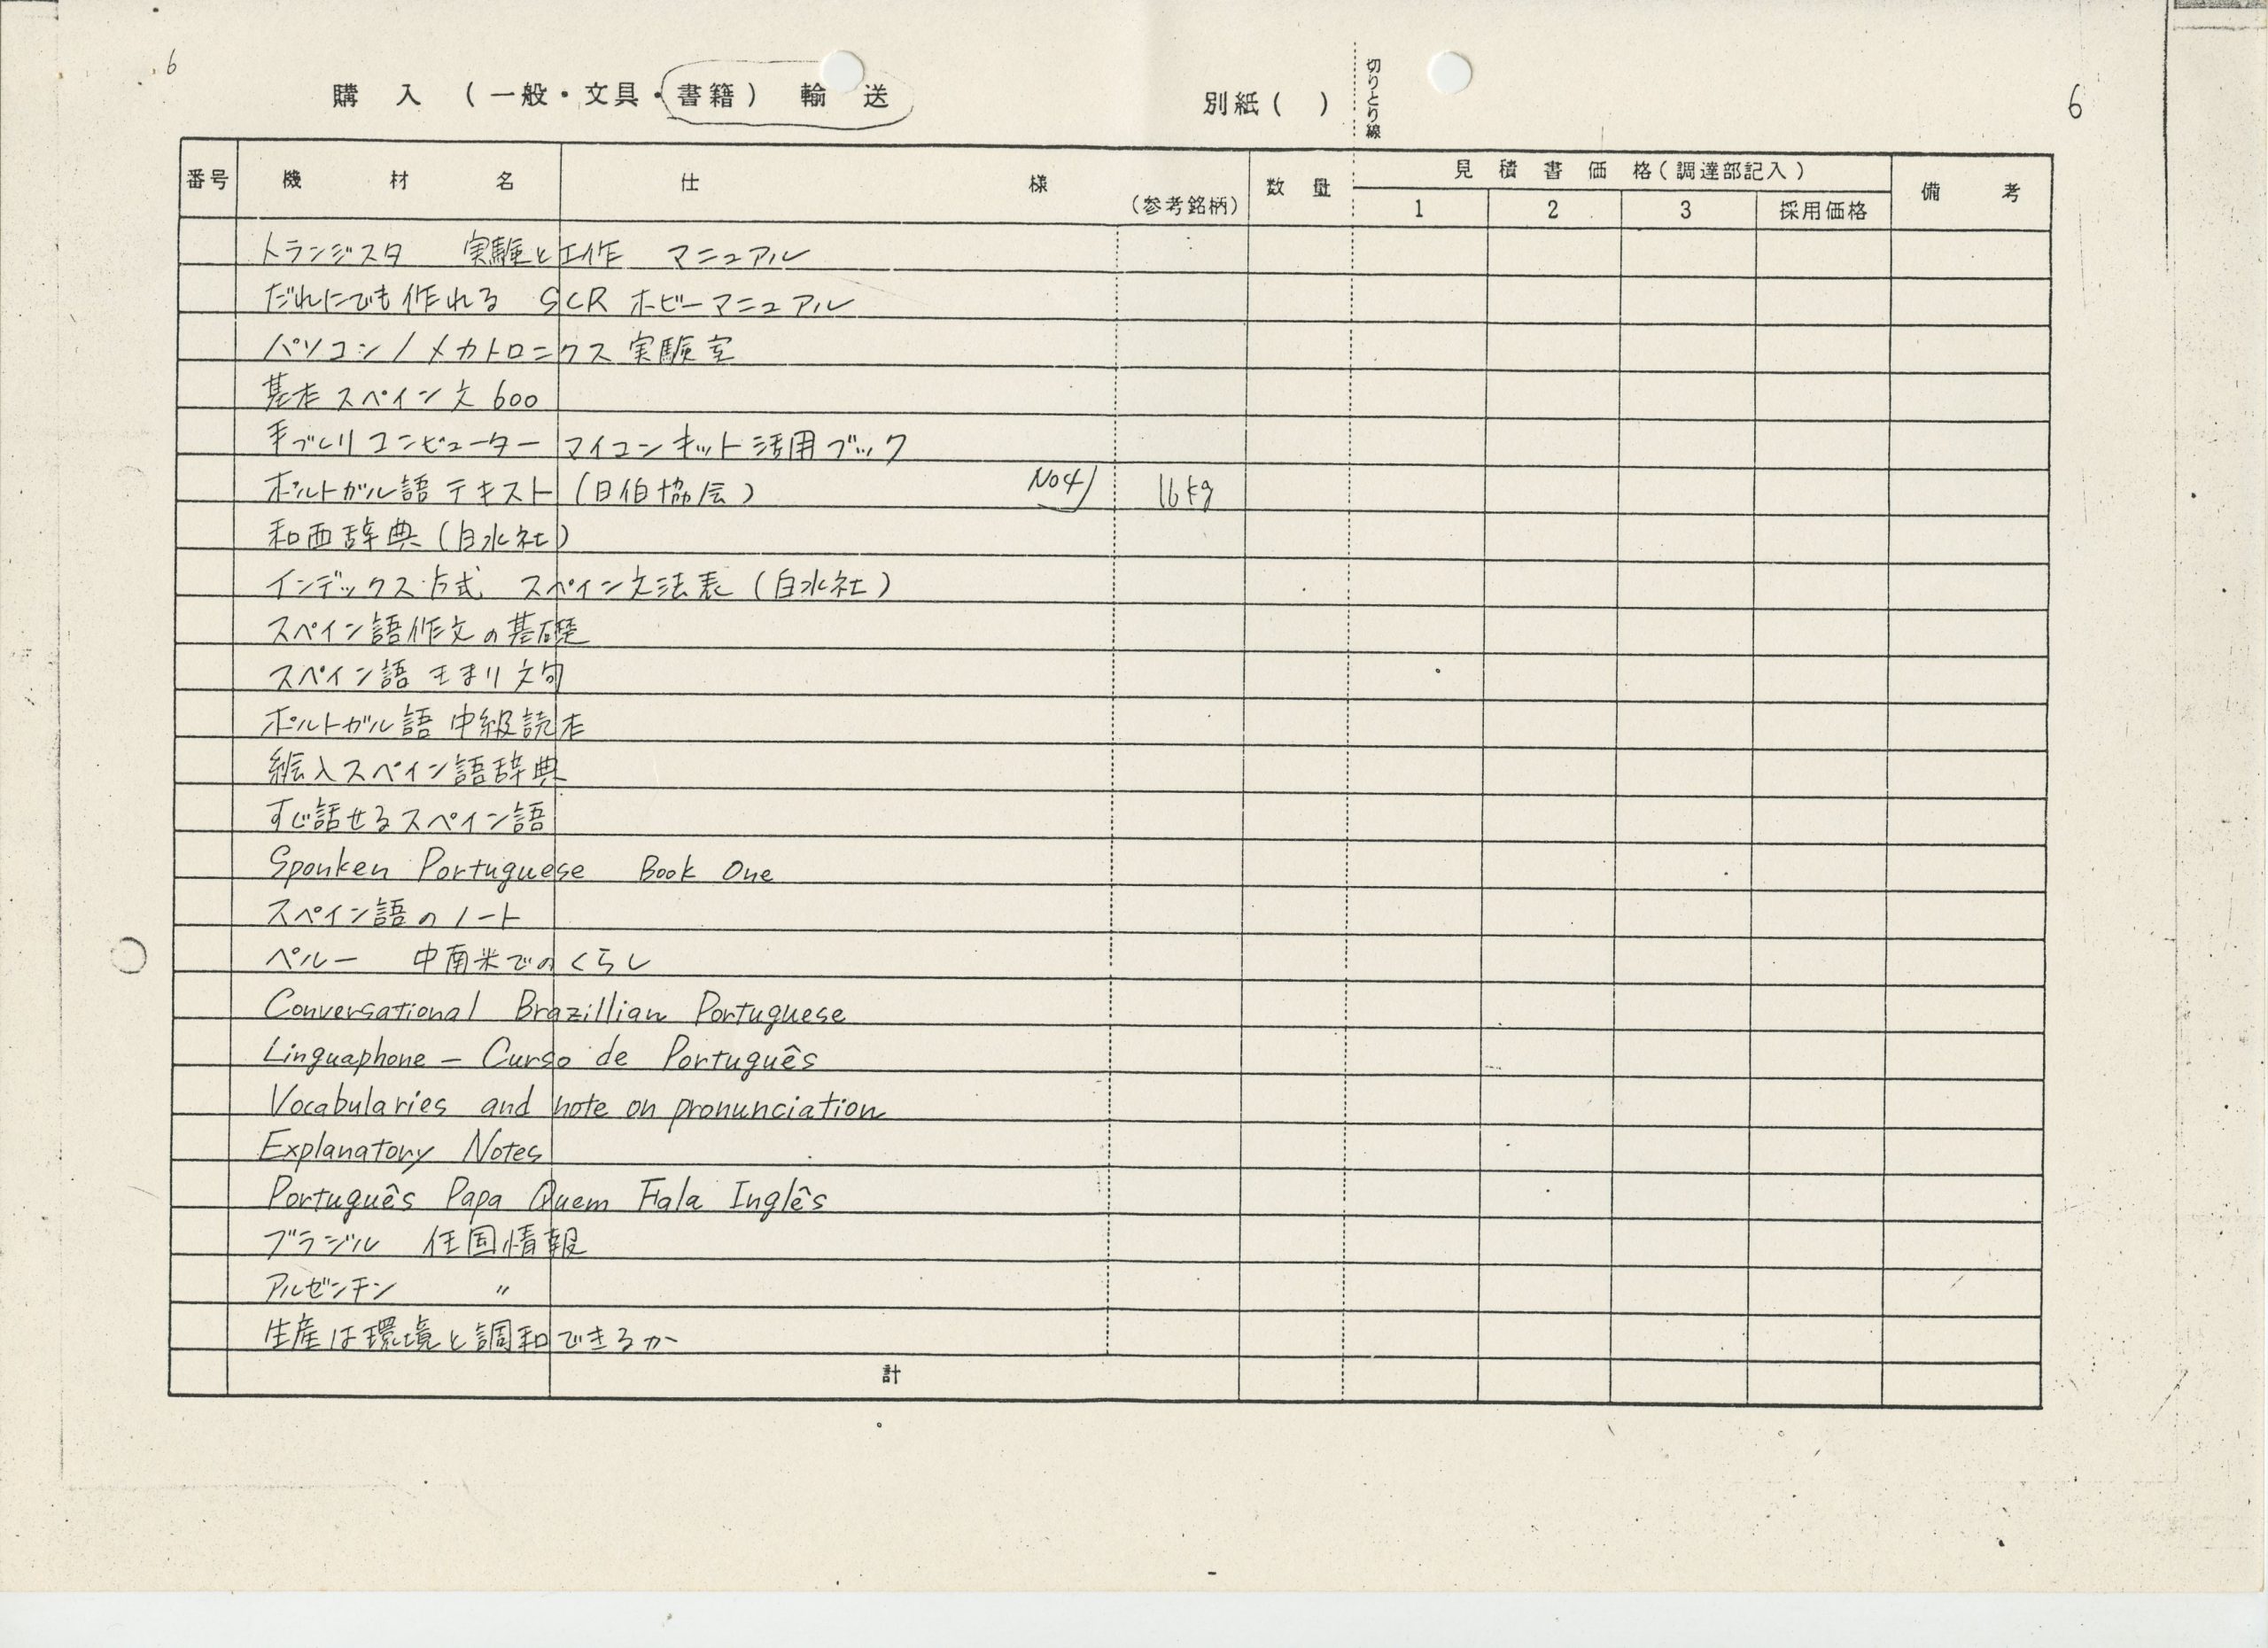 6
購入（一般・文具・書籍）輸送
別紙（　）
切りとり線
6
番号
機材名
仕様
（参考銘柄）
数量
見積書価格（調達部記入）
1
2
3
採用価格
備考
トランジスタ　実験と工作　マニュアル
だれにでも作れる　SCR ホビーマニュアル
パソコン/メカトロニクス実験室
基本スペイン文600
手づくりコンピューター マイコンキット活用ブック
ポルトガル語テキスト（日伯協会） No4 16kg
和西辞典（白水社）
インデックス方式　スペイン文法表（白水社）
スペイン語作文の基礎
スペイン語きまり文句
ポルトガル語中級読本
絵入スペイン語辞典
すぐ話せるスペイン語
Sponken Portuguese Book One
スペイン語のノート
ペルー　中南米でのくらし
Conversational Brazillian Portuguese
Linguaphone – Curso de Português
Vocabularies and note on pronunciation
Explanatory Notes
Português Papa Quem Fala Inglês
ブラジル　任国情報
アルゼンチン　〃
生産は環境と調和できるか
計